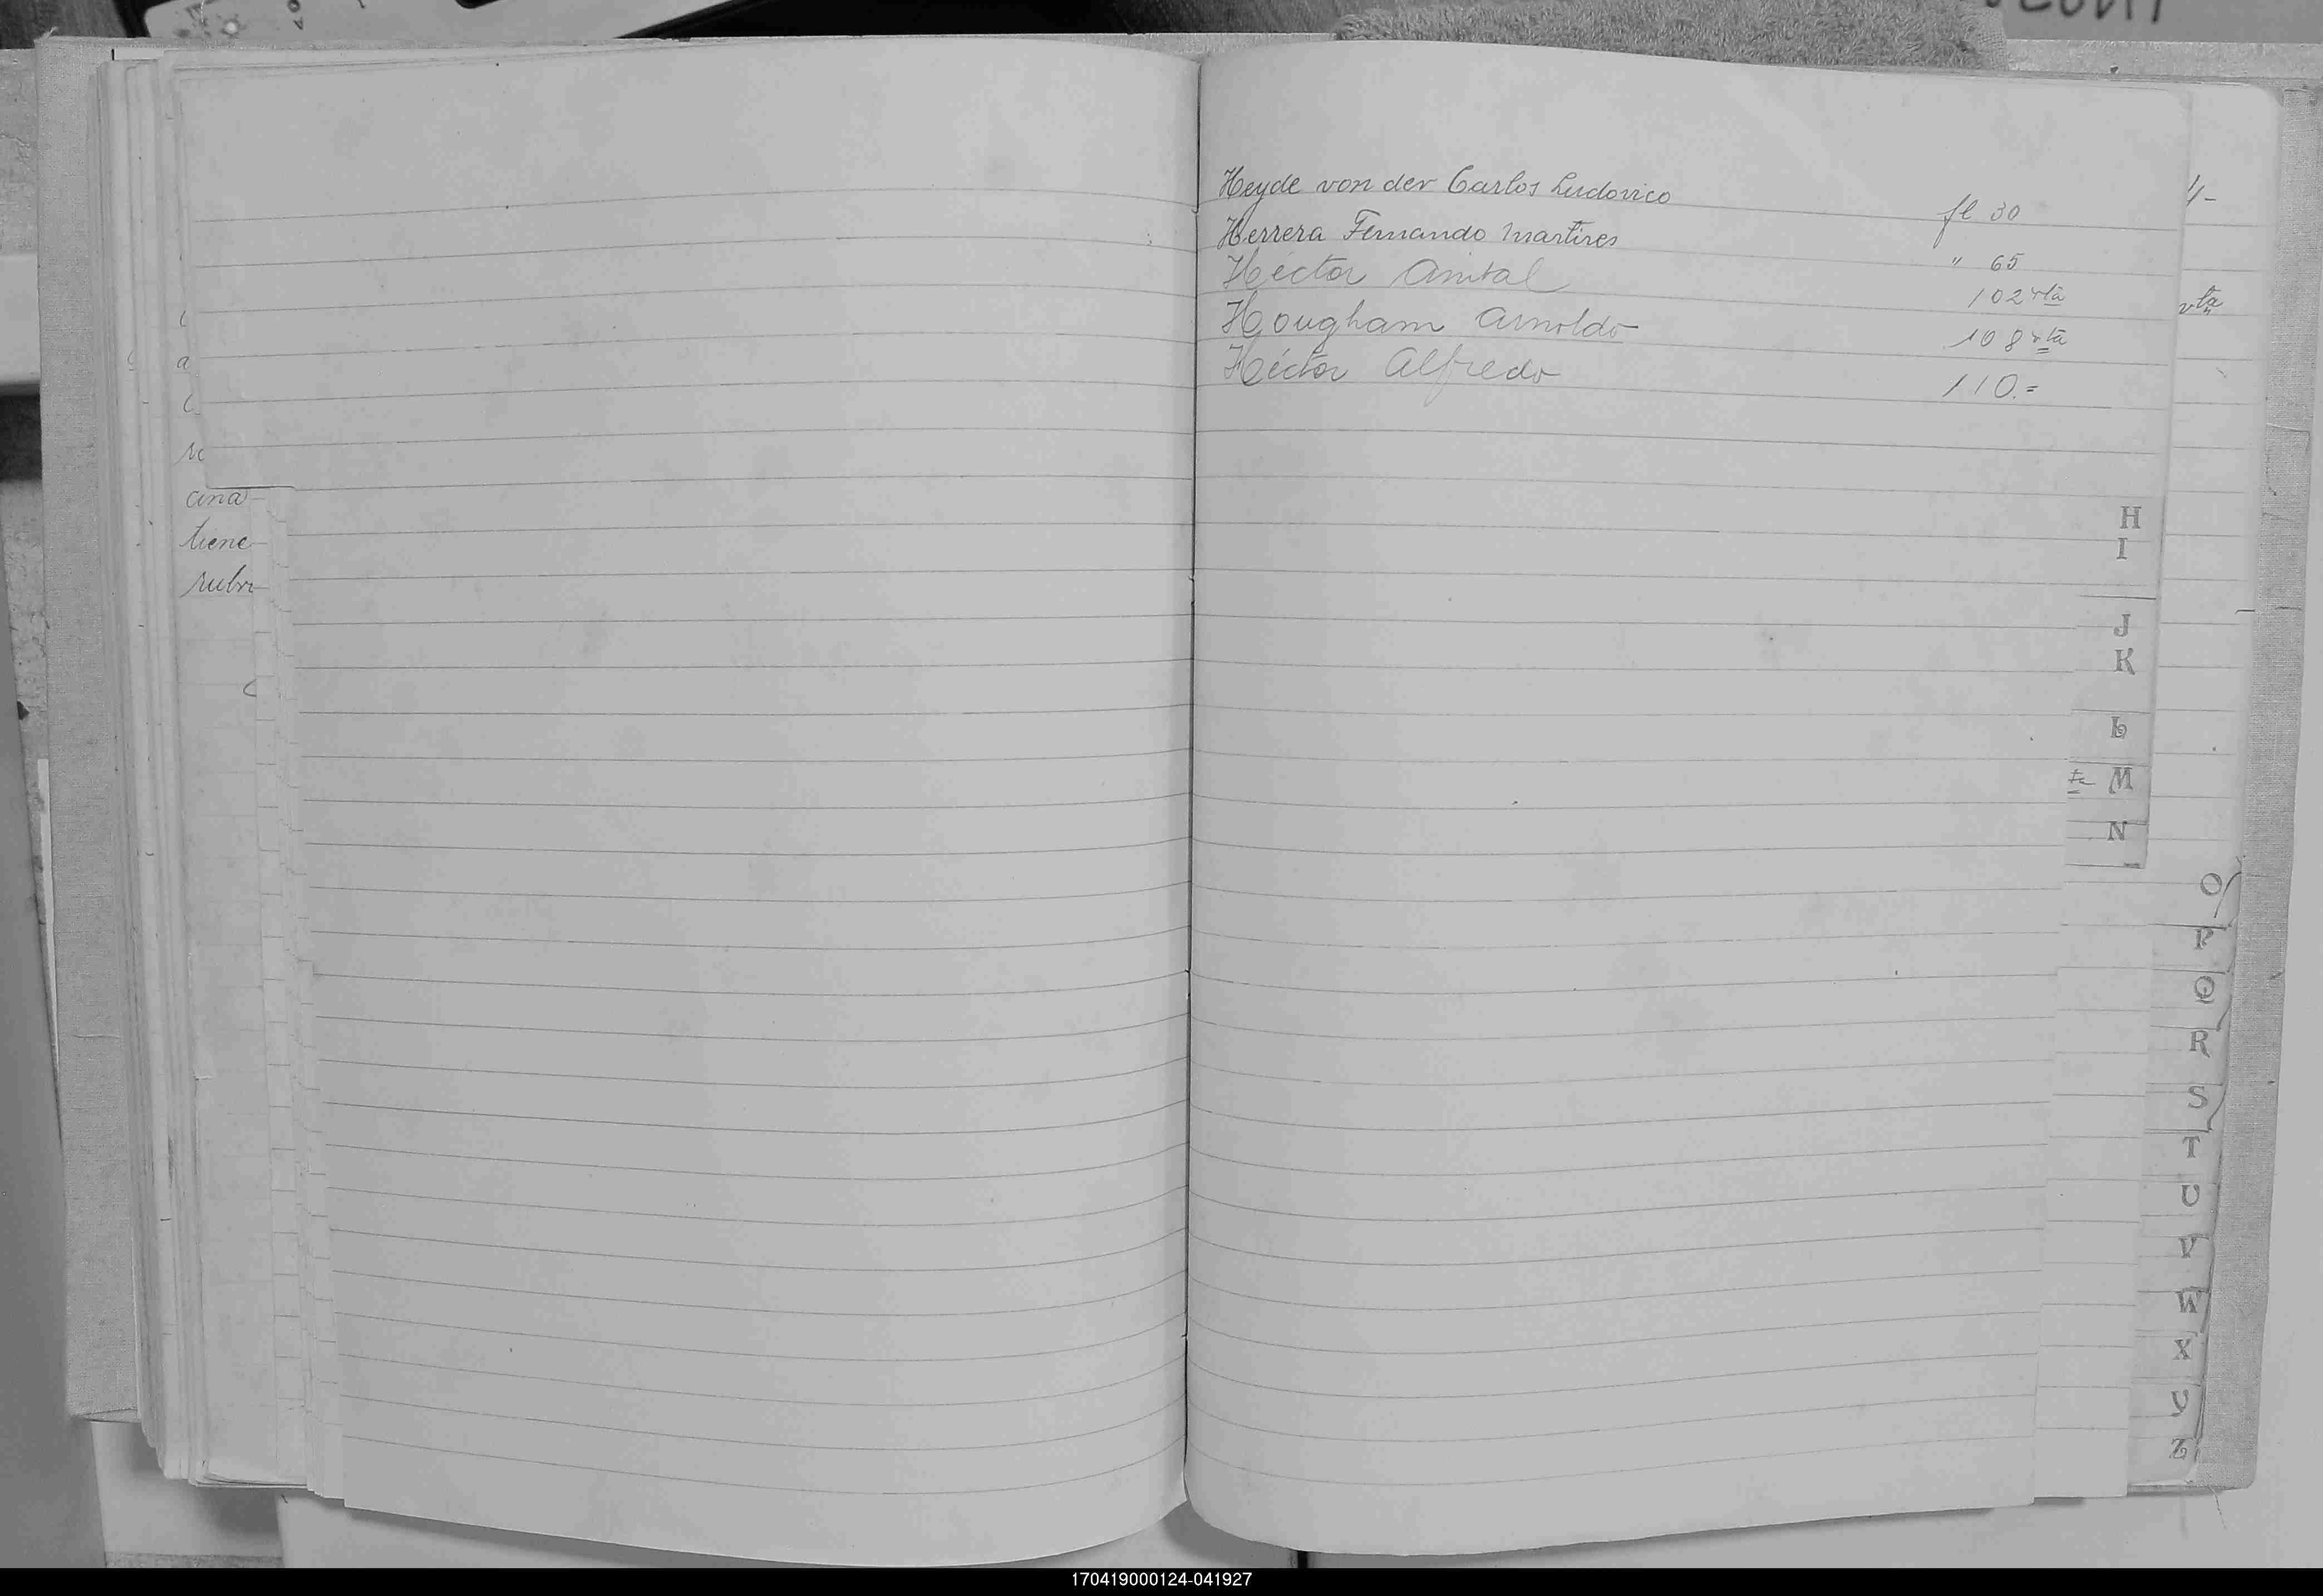 Heyde von der Carlos Ludovico fl 30
Herrera Fernando Martires " 65
Héctor Anibal 102 vta
Hougham Arnoldo 108 vta
Héctor Alfredo 110.=
vta
ana
tiene
rubri
H
I
J
K
L
M
N
O
P
Q
R
S
T
U
V
W
X
Y
Z
170419000124-041927